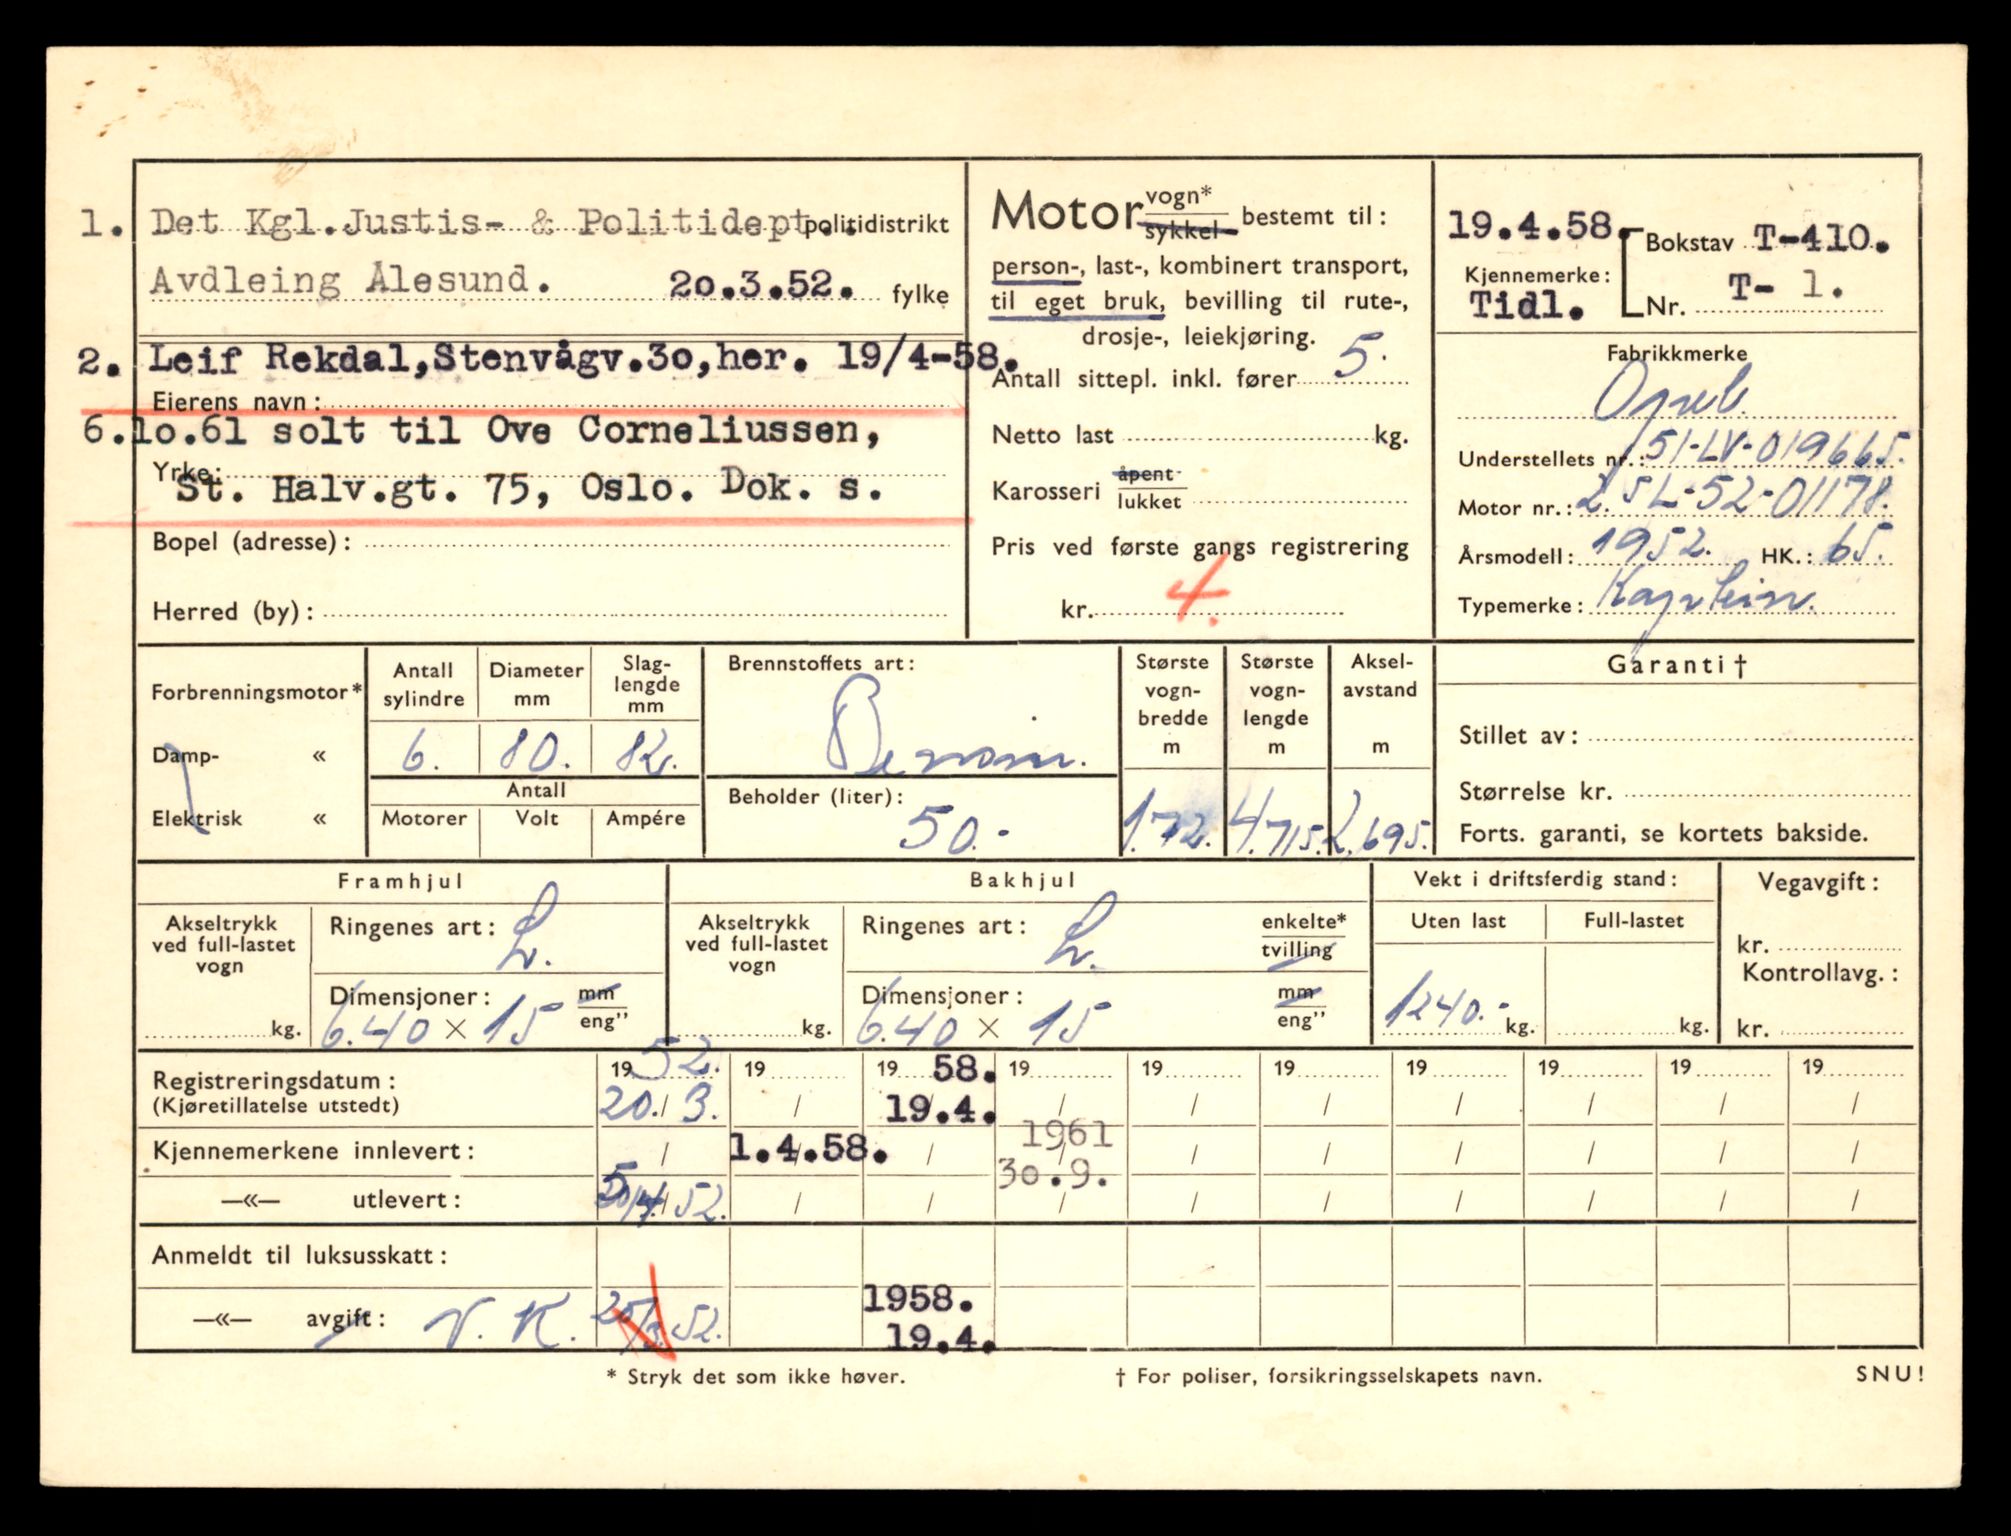 1. Det Kgl.Justis- & Politidept. politidistrikt
Avdleing Ålesund. 20.3.52. fylke
2. Leif Rekdal,Stenvågv.30,her. 19/4-58.
Eierens navn:
6.10.61 solt til Ove Corneliussen,
Yrke:
St. Halv.gt. 75, Oslo. Dok. s.
Bopel (adresse):
Herred (by):
Motor vogn* sykkel bestemt til:
person-, last-, kombinert transport,
til eget bruk, bevilling til rute-,
drosje-, leiekjøring.
Antall sittepl. inkl. fører 5.
Netto last kg.
Karosseri åpent lukket
Pris ved første gangs registrering
kr. 4.
19.4.58. Bokstav T-410.
Kjennemerke:
Tidl. Nr. T- 1.
Fabrikkmerke
Opel.
Understellets nr.: 51-LV-019665.
Motor nr.: 2.5L-52-01178.
Årsmodell: 1952. HK.: 65.
Typemerke: Kaptein.
Forbrenningsmotor*
Damp- «
Elektrisk «
Antall sylindre
Diameter mm
Slag-lengde mm
6. 80. 82.
Antall
Motorer Volt Ampére
Brennstoffets art:
Bensin.
Beholder (liter):
50.-
Største vogn-bredde m
Største vogn-lengde m
Aksel-avstand m
1.72. 4.715. 2.695.
Garanti †
Stillet av:
Størrelse kr.
Forts. garanti, se kortets bakside.
Framhjul
Akseltrykk ved full-lastet vogn
kg.
Ringenes art: L.
Dimensjoner: mm eng"
6.40 × 15
Bakhjul
Akseltrykk ved full-lastet vogn
kg.
Ringenes art: L. enkelte* tvilling
Dimensjoner: mm eng"
6.40 × 15
Vekt i driftsferdig stand:
Uten last Full-lastet
1240.- kg. kg.
Vegavgift:
kr.
Kontrollavg.:
kr.
Registreringsdatum: 19 52. 19 19 58. 19 19 19 19 19 19 19
(Kjøretillatelse utstedt) 20./3. / 19.4. / / / / / / /
Kjennemerkene innlevert: / 1.4.58. / 1961 / / / / / / /
30.9.
—«— utlevert: 52. / / / / / / / / /
Anmeldt til luksusskatt:
1958.
—«— avgift: V. K. 25/3.52. 19.4.
* Stryk det som ikke høver.
† For poliser, forsikringsselskapets navn.
SNU!